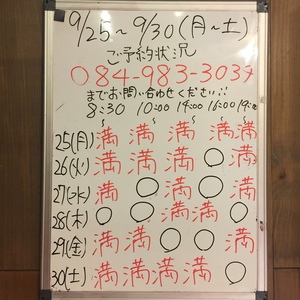 9/25~9/30(月~土)
ご予約状況
○084-983-3037
までお問い合わせください∴
8:30 10:00 14:00 16:00 19:00
~ ~ ~ ~ ~
25(月) 満 満 満 満 満
26(火) 満 満 満 ○ 満
27(水) 満 ○ 満 ○ 満
28(木) ○ ○ 満 満 ○
29(金) 満 満 ○ ○ 満
30(土) 満 満 満 満 ○